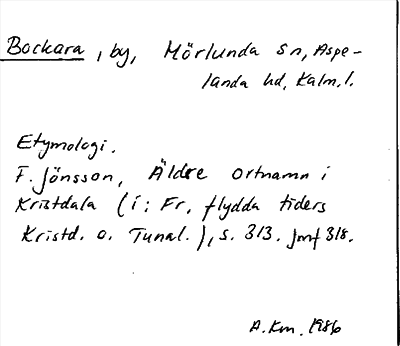 Bockara, by, Mörlunda sn, Aspe-
landa hd, Kalm. l.
Etymologi.
F. Jönsson, Äldre ortnamn i
Kristdala (i: Fr. flydda tiders
Kristd. o. Tunal.), s. 313. Jmf 318.
A.Km. 1986